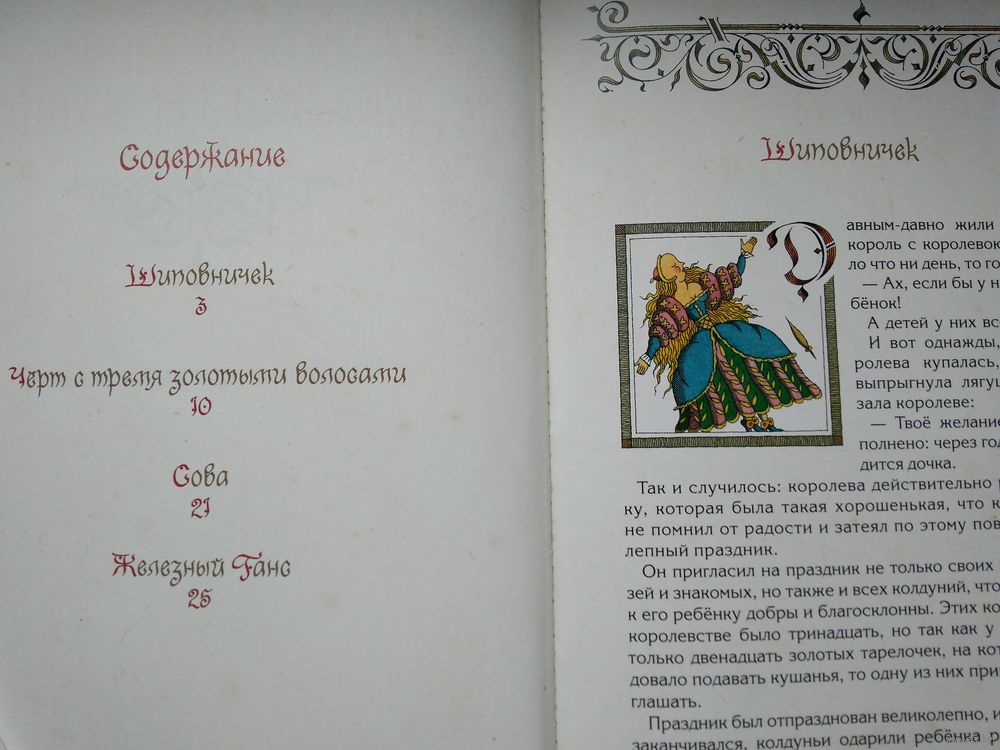 Содержание
Шиповничек
3
Чёрт с тремя золотыми волосами
10
Сова
21
Железный Ганс
25
Шиповничек
Давным-давно жили
король с королевою
ло что ни день, то го
— Ах, если бы у н
бёнок!
А детей у них вс
И вот однажды,
ролева купалась,
выпрыгнула лягу
зала королеве:
— Твоё желание
полнено: через год
дится дочка.
Так и случилось: королева действительно
ку, которая была такая хорошенькая, что к
не помнил от радости и затеял по этому пов
лепный праздник.
Он пригласил на праздник не только своих
зей и знакомых, но также и всех колдуний, что
к его ребёнку добры и благосклонны. Этих ко
королевстве было тринадцать, но так как у
только двенадцать золотых тарелочек, на кот
довало подавать кушанья, то одну из них при
глашать.
Праздник был отпразднован великолепно, и
заканчивался, колдуньи одарили ребёнка р